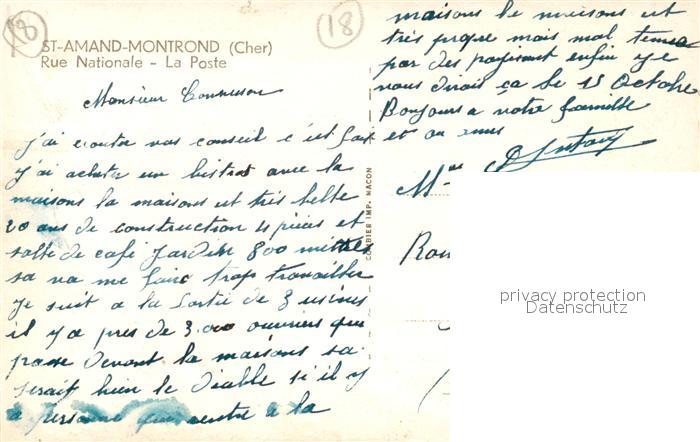 18
18
ST-AMAND-MONTROND (Cher)
Rue Nationale - La Poste
Monsieur
j'ai écouter vos conseil c'est fai
j'ai acheter un bistrot avec la
maisons la maisons est très belle
20 ans de construction 4 pièces et
salle de café jardin 800 mètres
sa va me faire trop travailler
je suit a la sortie de 3 usines
il y a pres de 3.000 ouvriers qui
passe devant la maisons sa
serait bien le diable si il y
a personne qui rentre a la
maisons le maisons est
très propre mais mal tenue
par des paysant enfin je
vous dirais ça le 15 Octobre
Bonjours a votre famille
et au
COMBIER IMP. MACON
M
Rou
privacy protection
Datenschutz